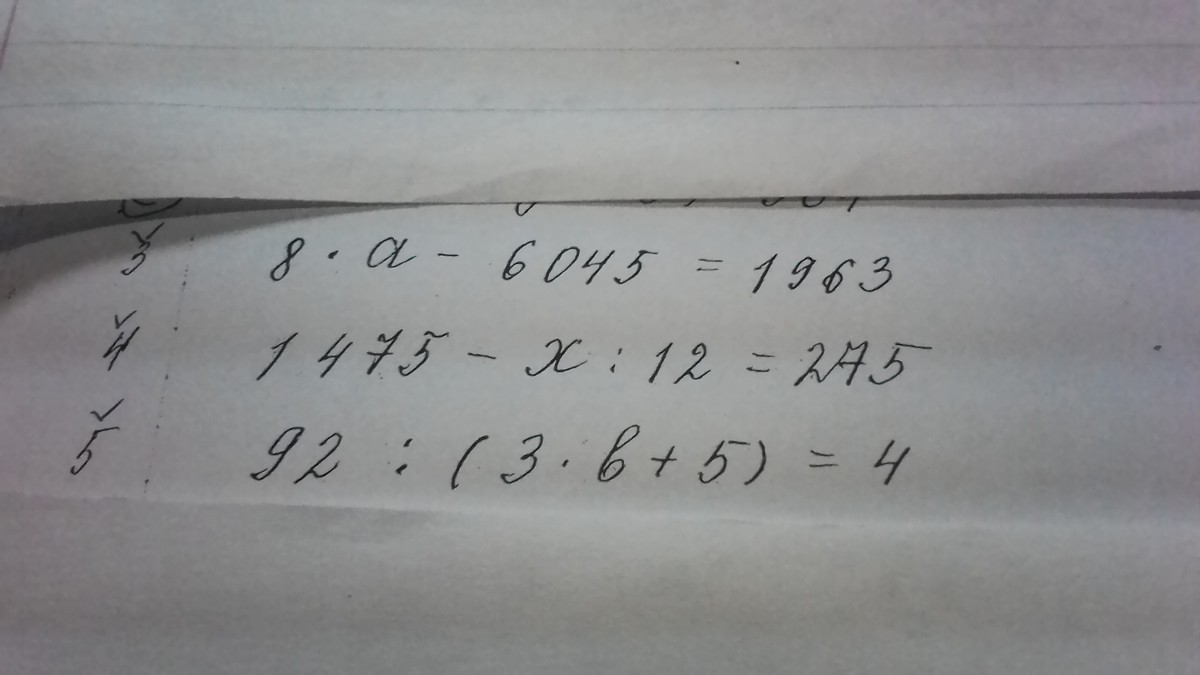 3 8 · a - 6045 = 1963
4 1475 - x : 12 = 275
5 92 : (3 · в + 5) = 4